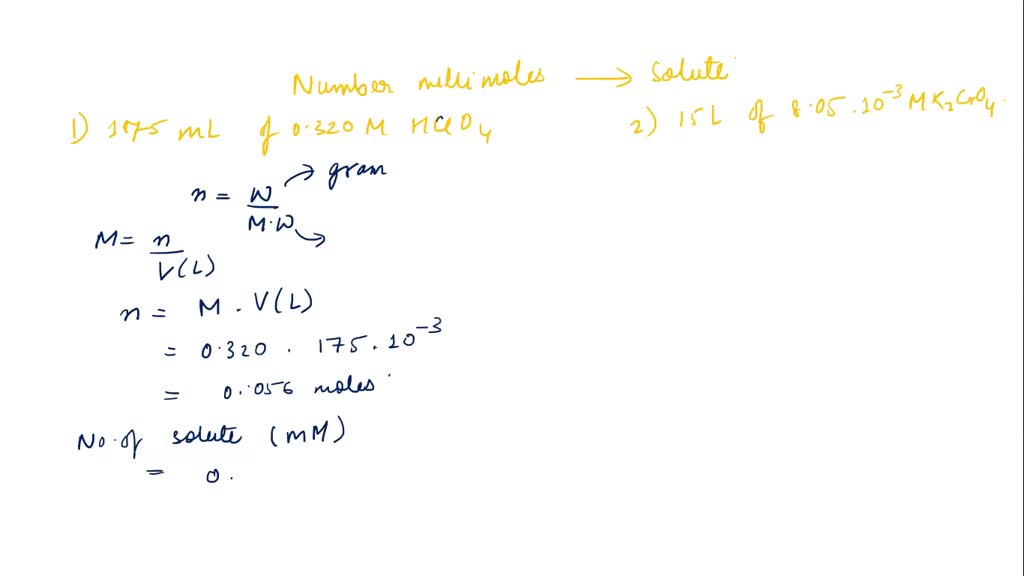 Number millimoles → solute
1) 175 mL of 0.320 M HClO4
2) 15L of 8.05.10⁻³ M K2CrO4.
n = W/M.W → gram
M = n/V(L)
n = M . V(L)
= 0.320 . 175.10⁻³
= 0.056 moles
No. of solute (mM)
= 0.